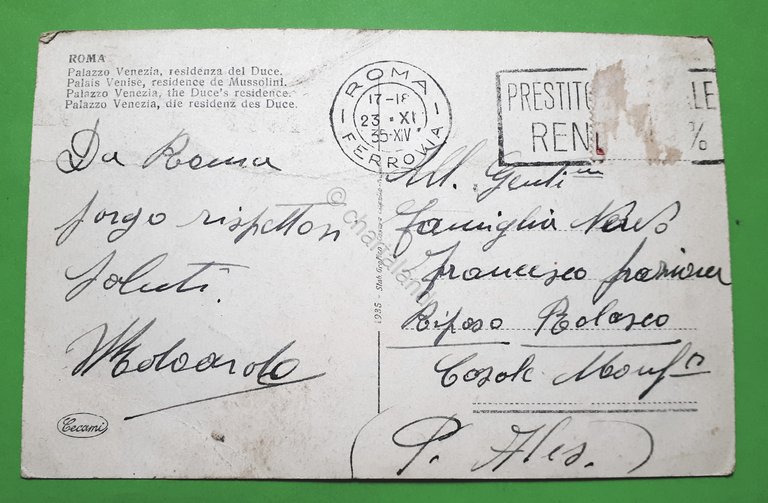 ROMA
Palazzo Venezia, residenza del Duce.
Palais Venise, residence de Mussolini.
Palazzo Venezia, the Duce's residence.
Palazzo Venezia, die residenz des Duce.
ROMA
17-18
23 • XI
35·XIV
FERROVIA
PRESTITO LE
REN %
Da Roma
porgo rispettosi
saluti.
All. Gent.
Famiglia
Francesco
Riposo
Casale Monf
(P. Ales.)
1935 -
© chartaland
Cecami